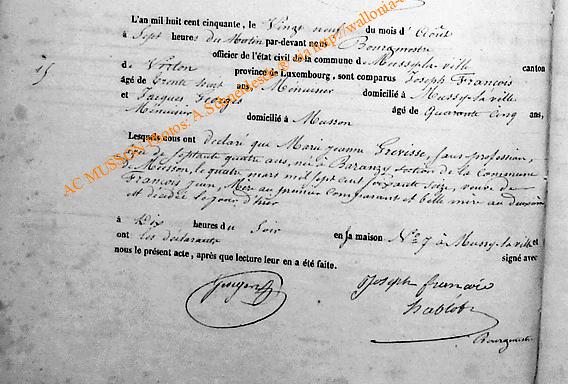 L'an mil huit cent cinquante, le Vingt neuf du mois d'Août
à Sept heures du Matin par-devant nous Bourgmestre
officier de l'état civil de la commune d Mussy-la-ville canton
de Virton province de Luxembourg, sont comparus Joseph François
15 âgé de Trente huit ans, Menuisier domicilié à Mussy-la-ville
et Jacques Georges âgé de Quarante Cinq ans,
Menuisier domicilié à Musson
Lesquels nous ont déclaré que Marie Jeanne Grevisse, sans profession,
agée de septante quatre ans, née à Baranzy section de la Commune
de Musson, le quatre mars mil sept cent soixante seize, veuve de
François Jean, Mère au premier comparant et belle mère au deuxième
est décédée le jour d'hier
à Dix heures du Soir en sa maison N° 7 à Mussy-la-ville et
ont les déclarants signé avec
nous le présent acte, après que lecture leur en a été faite.
Joseph francois
Bourgmestre
AC MUSSON photos: A.Schmedeskamp via http://wallonia-